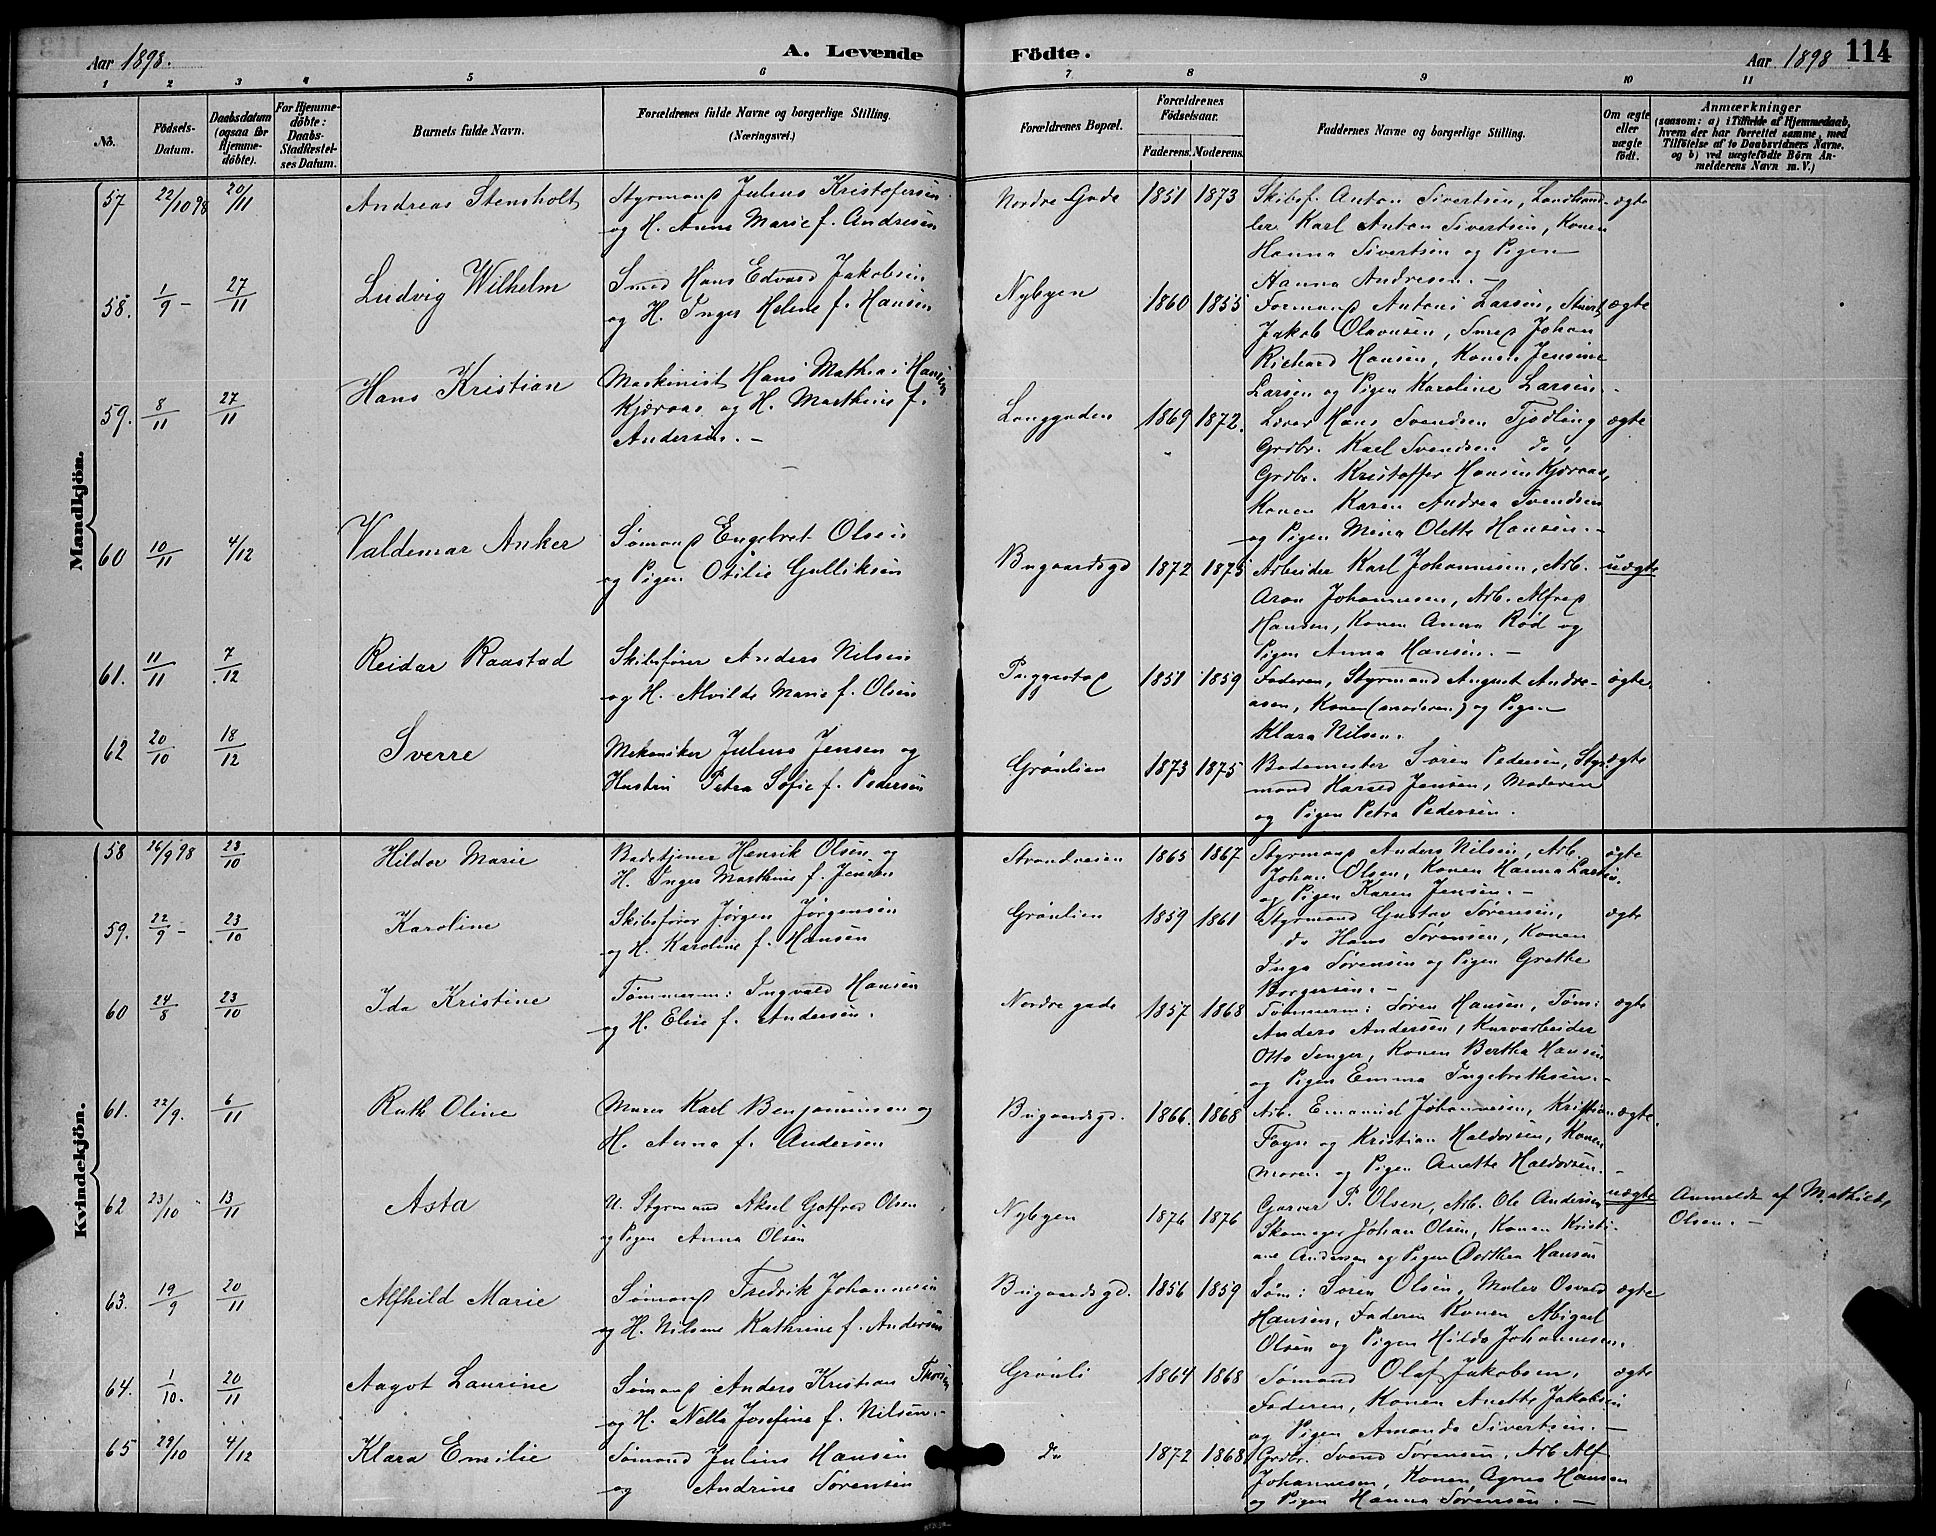 Aar 1898.
A. Levende
Födte.
Aar 1898
114
1 2 3 4 5 6 7 8 9 10 11
No.
Födsels-Datum.
Daabsdatum (ogsaa for Hjemme-döbte).
For Hjemme-döbte: Daabs-Stadfæstel-ses Datum.
Barnets fulde Navn.
Forældrenes fulde Navne og borgerlige Stilling. (Næringsvei.)
Forældrenes Bopæl.
Forældrenes Födselsaar.
Faderens. Moderens.
Faddernes Navne og borgerlige Stilling.
Om ægte eller uægte födt.
Anmærkninger
(saasom: a) i Tilfælde af Hjemmedaab, hvem der har forrettet samme, med Tilföielse af to Daabsvidners Navne. og b) ved uægtefödte Börn An-melderens Navn m. V.)
Mandkjön.
57 22/10 98 20/11 Andreas Stensholt
Styrmand Julius Kristofersen
og H. Anne Marie f. Andresen
Nordre Gade 1851 1873
Skibsf. Anton Sivertsen, Landhand-
ler Karl Anton Sivertsen, Konen
Hanna Sivertsen og Pigen
Hanna Andresen. -
ægte
58. 1/9 - 27/11 Ludvig Wilhelm
Smed Hans Edvard Jakobsen
og H. Inger Helene f. Hansen
Nybyen 1860 1855
Formand Antoni Larsen,
Jakob Olavesen, Smed Johan
Richard Hansen, Konen Jensine
Larsen og Pigen Karoline Larsen. -
ægte
59. 8/11 27/11 Hans Kristian
Maskinist Hans Mathias Hansen
Kjæraas og H. Marthine f.
Andersen. -
Langgaden 1869 1872.
Lærer Hans Svendsen Tjødling
Grdbr. Karl Svendsen do,
Grdbr. Kristoffer Hansen Kjæraas,
Konen Karen Andrea Svendsen
og Pigen Mina Olette Hansen. -
ægte
60 10/11 4/12 Valdemar Anker
Sømand Engebret Olsen
og Pigen Otilie Gulliksen
Bugaardsgd 1872 1875
Arbeider Karl Johannesen, Arb.
Aron Johannesen, Arb. Alfred
Hansen, Konen Anna Rød og
Pigen Anna Hansen. -
uægte
61. 11/11 7/12 Reidar Raastad
Skibsfører Anders Nilsen
og H. Alvilde Marie f. Olsen
1851 1859
Faderen, Styrmand August Andre-
asen, Konen (moderen) og Pigen
Klara Nilsen.
ægte.
62 20/10 18/12 Sverre
Mekaniker Julius Jensen og
Hustru Petra Sofie f. Pedersen
Grönlien 1873 1875
Bademester Sören Pedersen, Styr-
mand Harald Jensen, Moderen
og Pigen Petra Pedersen.
ægte
Kvindekjön.
58 26/9 98 23/10 Hildor Marie
Badetjener Henrik Olsen og
H. Inger Marthine f. Jensen
Strandveien 1865 1867
Styrmand Anders Nilsen, Arb.
Johan Olsen, Konen Hanna Larsen.
og Pigen Karen Jensen. -
ægte
59. 22/9 - 23/10 Karoline
Skibsfører Jørgen Jørgensen
og H. Karoline f. Hansen
Grönlien 1859 1861
Styrmand Gustav Sørensen,
do Hans Sørensen, Konen
Inga Sørensen og Pigen Grethe
Borgersen. -
ægte
60 24/8 23/10 Ida Kristine
Tømmerm: Ingvald Hansen
og H. Elise f. Andersen.
Nordre gade 1857 1868
Tømmerm: Søren Hansen, Töm:
Anders Andersen, Kurvarbeider
Otto Senger, Konen Bertha Hansen
og Pigen Emma Ingebrethsen. -
ægte
61. 22/9. 6/11 Ruth Oline
Murer Karl Benjaminsen og
H. Anna f. Andersen
Bugaardsgd. 1866. 1868
Arb. Emanuel Johannesen, Kristian
Foyn og Kristian Haldorsen, Konen
Maren og Pigen Anette Haldorsen. -
ægte.
62 23/10 13/11 Asta
U. Styrmand Aksel Gotfred Olsen
og Pigen Anna Olsen
Nybyen 1876 1876
Garver P. Olsen, Arb. Ole Andersen
Skomager Johan Olsen, Konen Kristi-
ane Andersen og Pigen Dorthea Hansen
uægte
Anmeldt af Mathilde
Olsen. -
63. 19/9 20/11 Alfhild Marie
Sømand Fredrik Johannesen
og H. Nilsine Kathrine f. Andersen
Bugaardsgd. 1856 1859
Søm: Søren Olsen, Maler Osvald
Hansen, Faderen Konen Abigael
Olsen og Pigen Hilda Johannesen.
ægte
64. 1/10. 20/11 Aagot Laurine
Sømand Anders Kristian Thorsen
og H. Nella Josefine f. Nilsen. -
Grönli 1864 1868
Sømand Olaf Jakobsen,
Faderen, Konen Anette Jakobsen
og Pigen Amanda Sivertsen. -
ægte
65 29/10 4/12 Klara Emilie
Sømand Julius Hansen
og Andrine Sørensen
do 1872 1868
Grdbr. Svend Sørensen, Arb Alf
Johannesen, Konen Agnes Hansen
og Pigen Hanna Sørensen. -